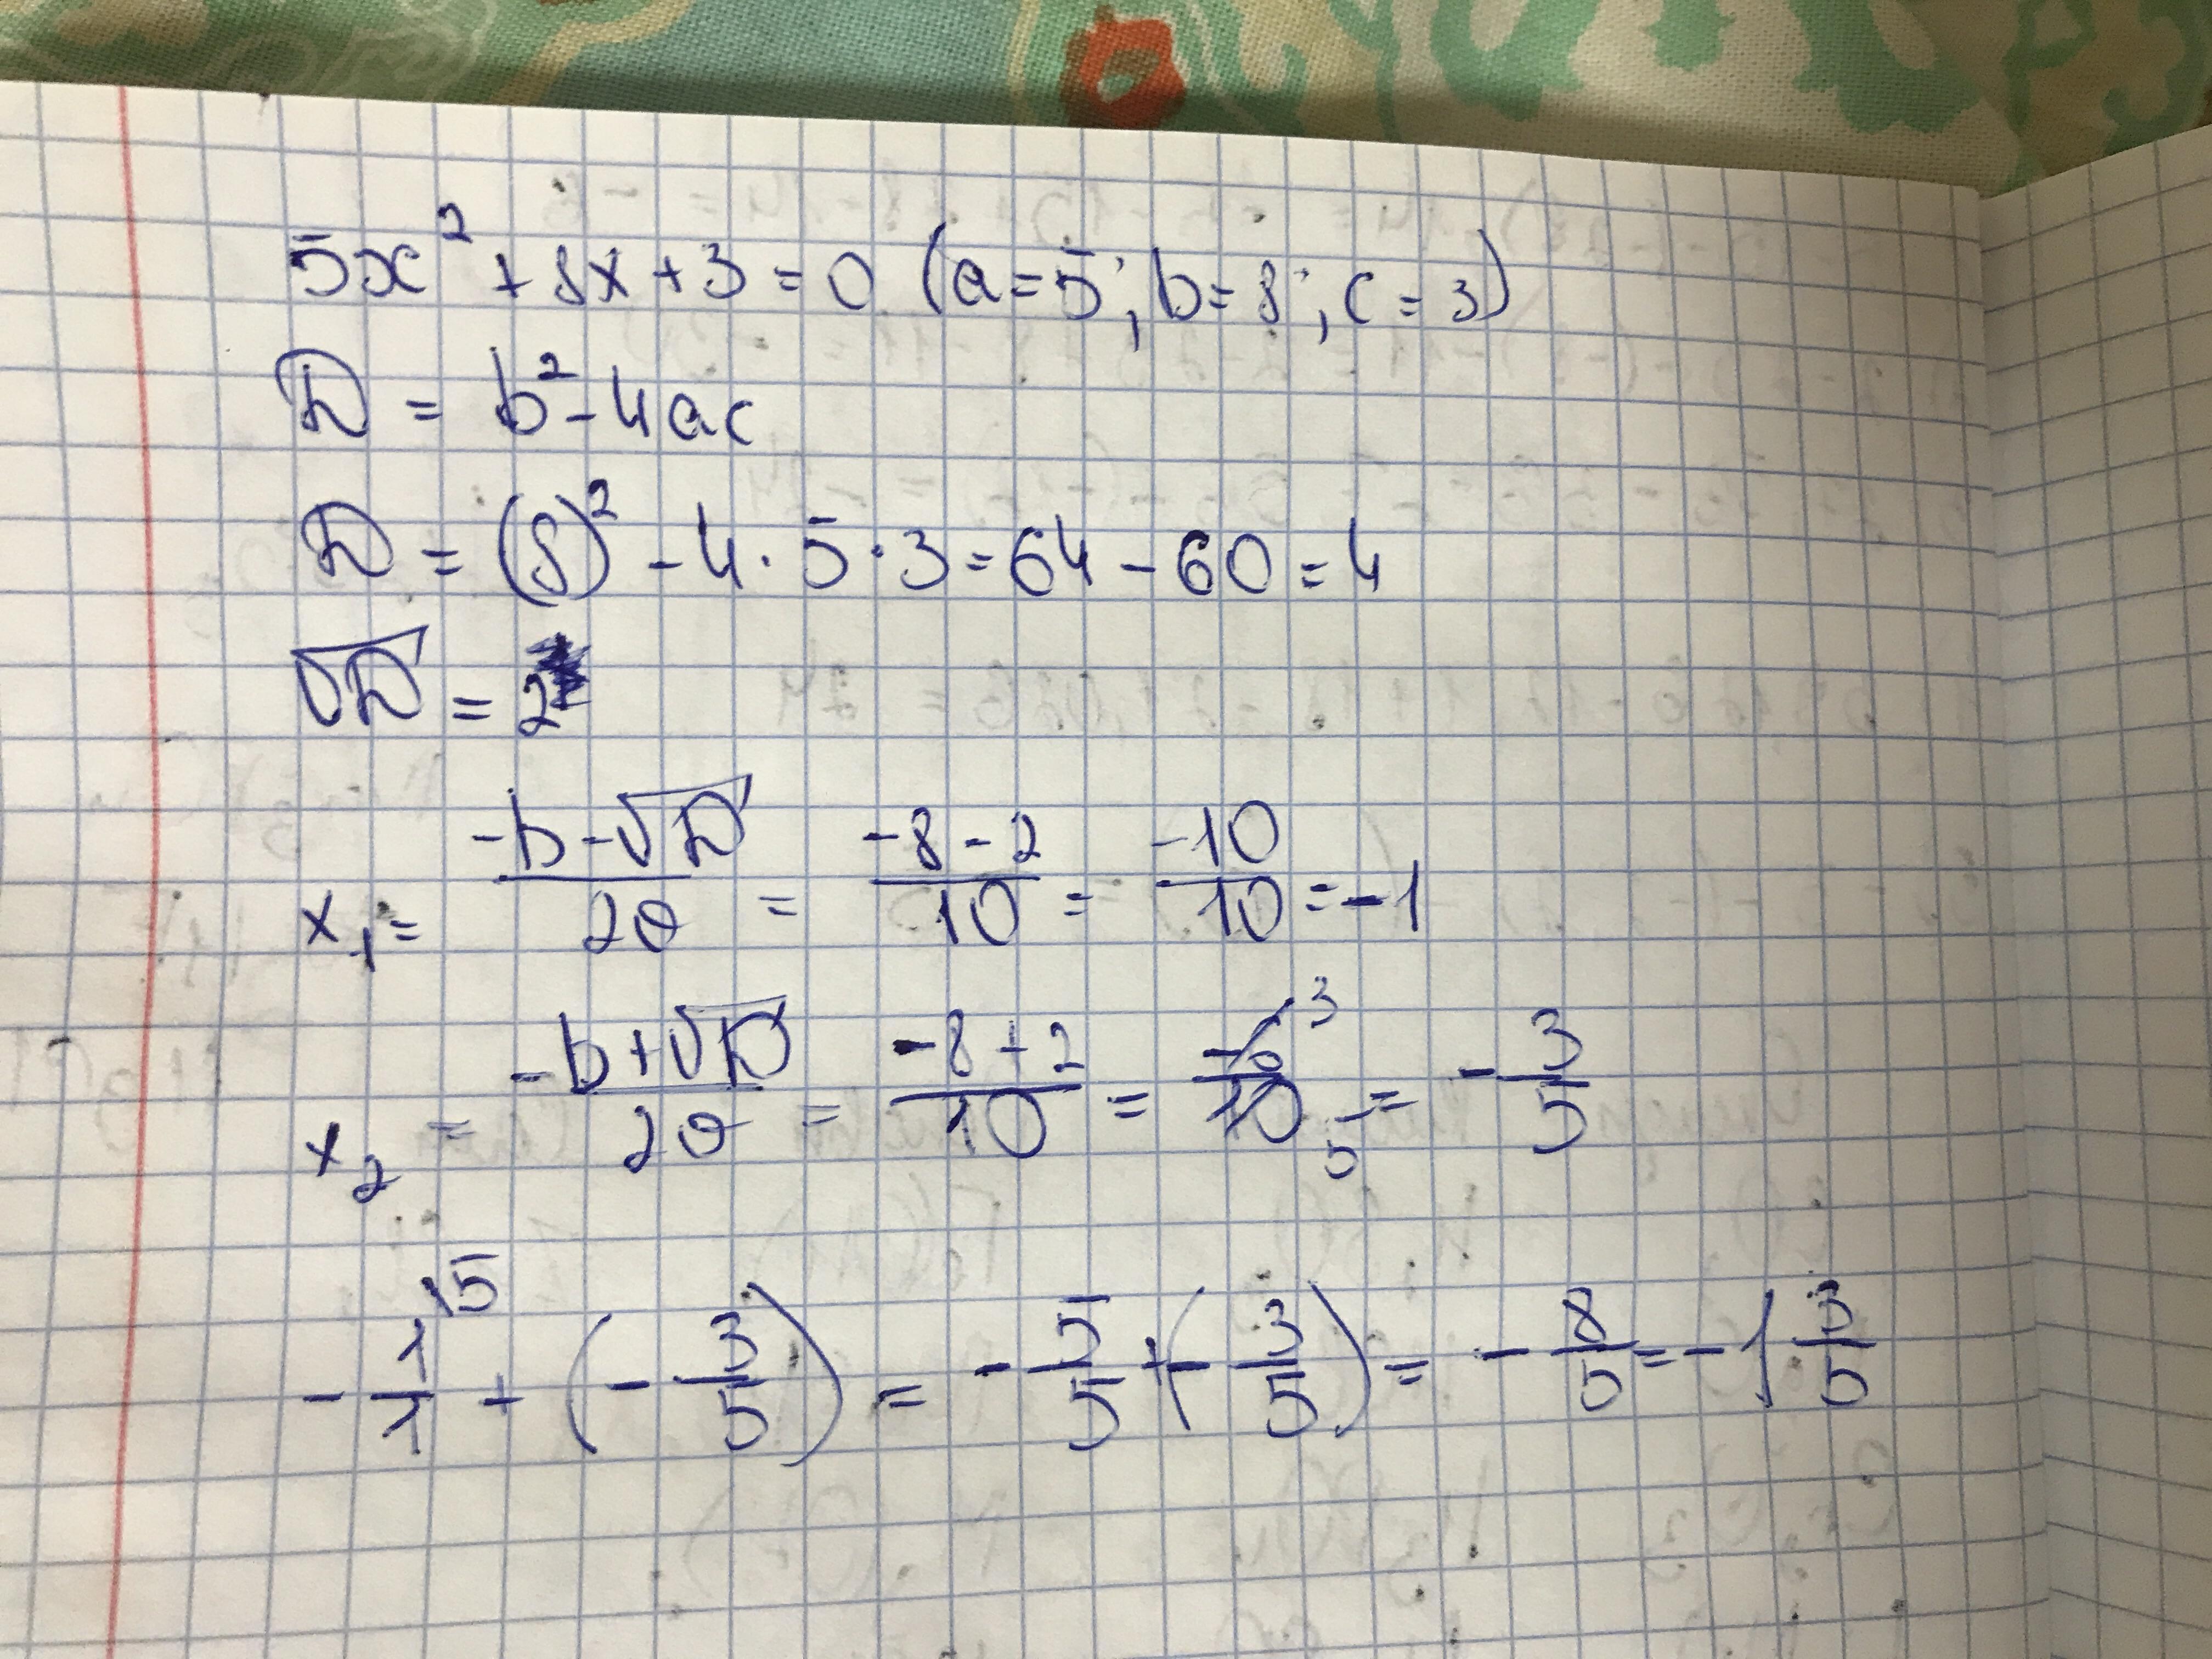 5x² + 8x + 3 = 0 (a = 5; b = 8; c = 3)
D = b² - 4ac
D = (8)² - 4 · 5 · 3 = 64 - 60 = 4
√D = 2
x₁ = (-b - √D)/2a = (-8 - 2)/10 = -10/10 = -1
x₂ = (-b + √D)/2a = (-8 + 2)/10 = -6/10 ³ ₅ = -3/5
-1/1 \5 + (-3/5) = -5/5 + (-3/5) = -8/5 = -1 3/5